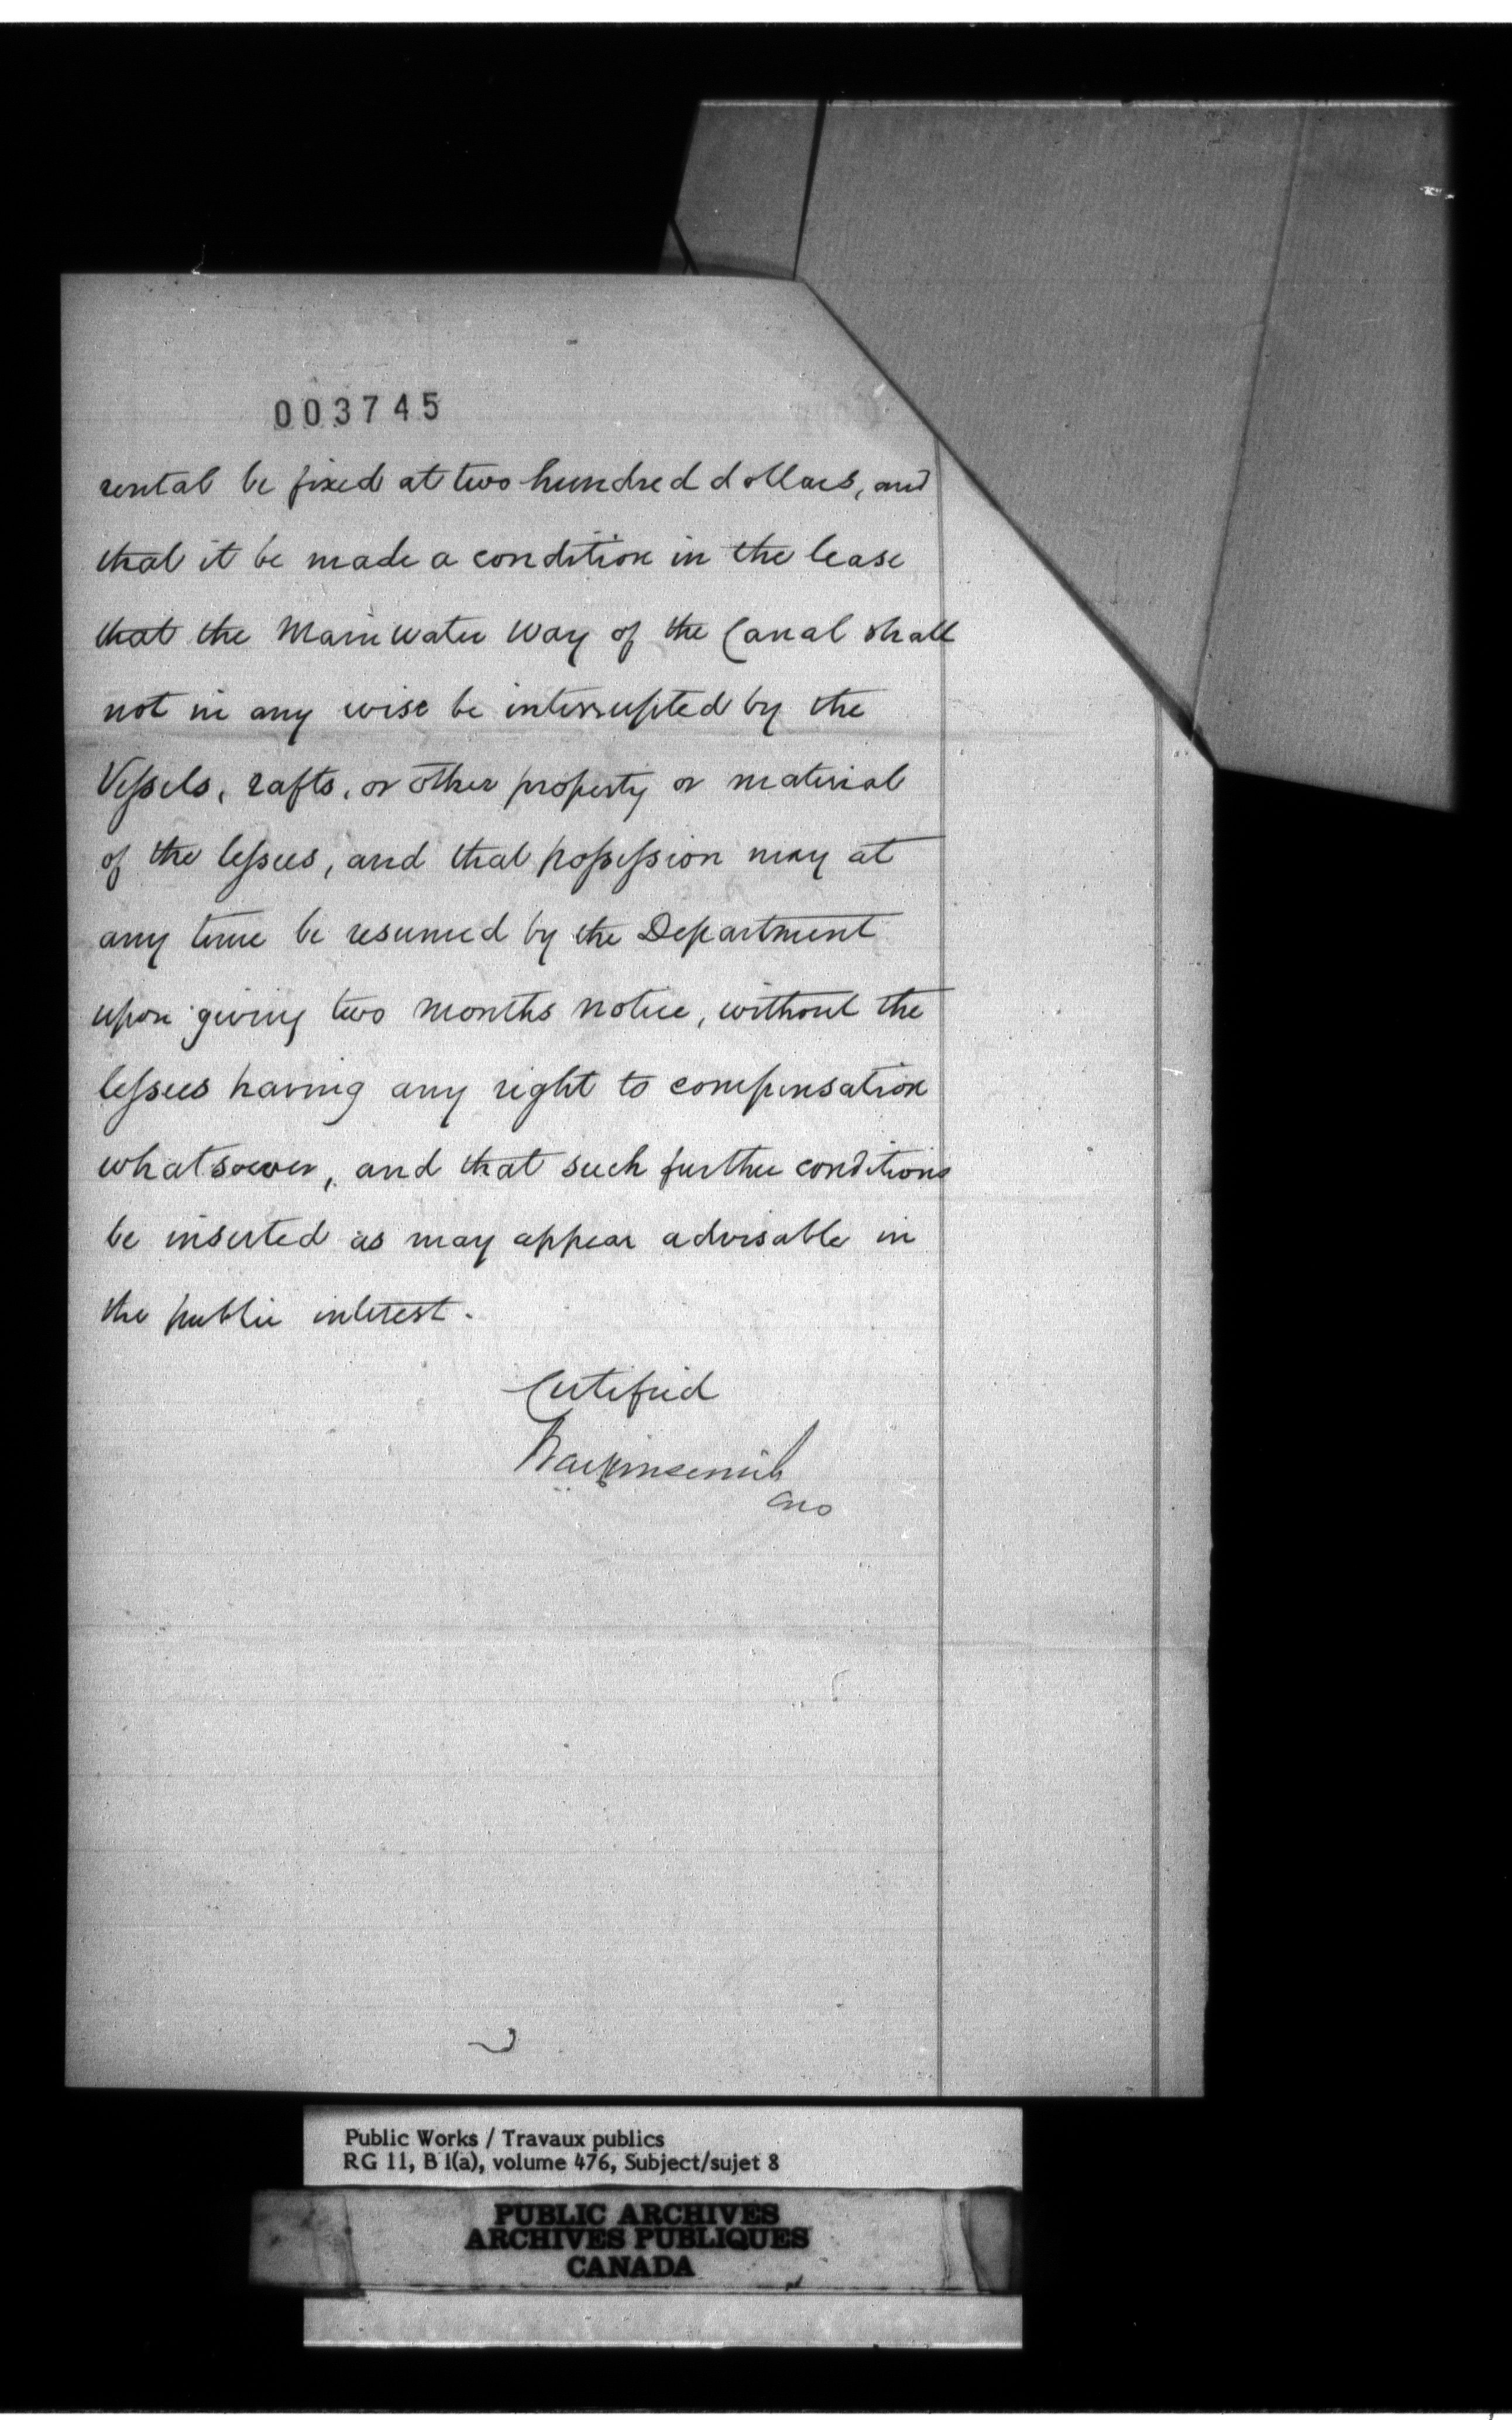 003745
rental be fixed at two hundred dollars, and
that it be made a condition in the lease
that the Main Water Way of the Canal shall
not in any wise be interrupted by the
Vessels, rafts, or other property or material
of the lessees, and that possession may at
any time be resumed by the Department
upon giving two months notice, without the
lessees having any right to compensation
whatsoever, and that such further conditions
be inserted as may appear advisable in
the public interest.
Certified
Public Works / Travaux publics
RG 11, B 1(a), volume 476, Subject/sujet 8
PUBLIC ARCHIVES
ARCHIVES PUBLIQUES
CANADA